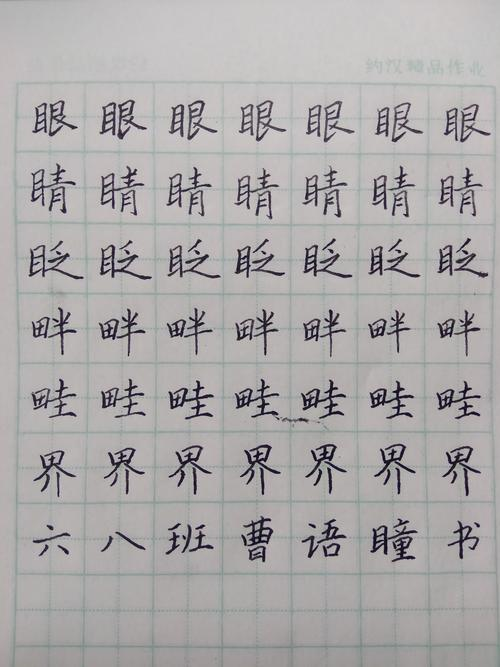 约汉精品作业
眼眼眼眼眼眼眼
睛睛睛睛睛睛睛
眨眨眨眨眨眨眨
畔畔畔畔畔畔畔
畦畦畦畦畦畦畦
界界界界界界界
六八班曹语瞳书